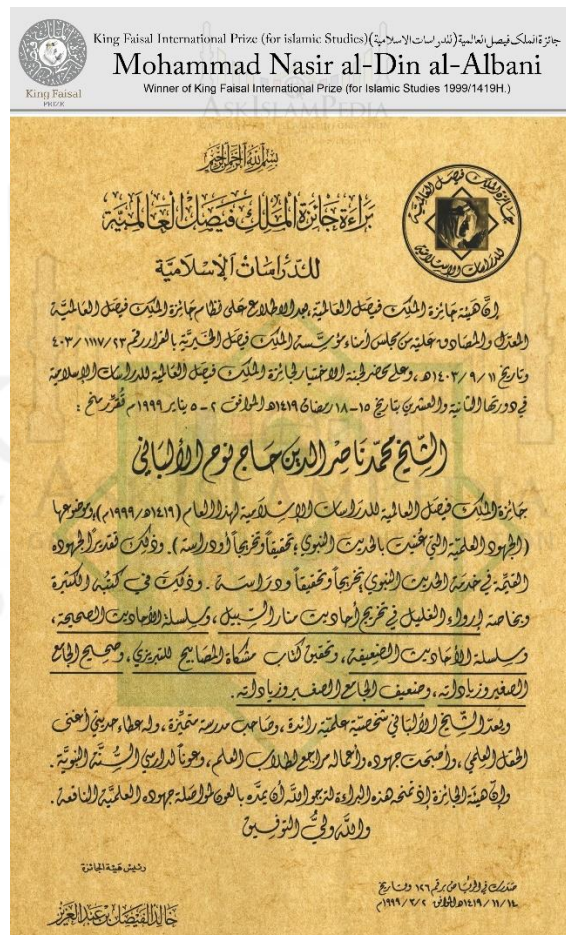 King Faisal International Prize (for islamic Studies)(جائزة الملك فيصل العالمية (للدراسات الاسلامية
Mohammad Nasir al-Din al-Albani
Winner of King Faisal International Prize (for Islamic Studies 1999/1419H.)
King Faisal
PRIZE
ASKISLAMPEDIA
بسم الله الرحمن الرحيم
جائزة الملك فيصل العالمية
للدراسات الإسلامية
براءة جائزة الملك فيصل العالمية
للدراسات الإسلامية
إن هيئة جائزة الملك فيصل العالمية، بعد الاطلاع على نظام جائزة الملك فيصل العالمية
المعدل والمصادق عليه من مجلس أمناء مؤسسة الملك فيصل الخيرية بالقرار رقم ٤٠٣/١١١٧/٢٣
وتاريخ ١٤٠٣/٩/١١هـ، وعلى محضر لجنة الاختيار لجائزة الملك فيصل العالمية للدراسات الإسلامية
في دورتها الثانية والعشرين بتاريخ ١٥-١٨ رمضان ١٤١٩هـ الموافق ٢-٥ يناير ١٩٩٩م تقرر منح :
الشيخ محمد ناصر الدين حاج نوح الألباني
جائزة الملك فيصل العالمية للدراسات الإسلامية لهذا العام (١٤١٩هـ/١٩٩٩م)، وموضوعها
(الجهود العلمية التي عنيت بالحديث النبوي؛ تحقيقاً وتخريجاً أو دراسة). وذلك تقديراً لجهوده
القيمة في خدمة الحديث النبوي؛ تخريجاً وتحقيقاً ودراسة. وذلك في كتبه الكثيرة
وبخاصة إرواء الغليل في تخريج أحاديث منار السبيل، وسلسلة الأحاديث الصحيحة،
وسلسلة الأحاديث الضعيفة، وتحقيق كتاب مشكاة المصابيح للتبريزي، وصحيح الجامع
الصغير وزياداته، وضعيف الجامع الصغير وزياداته.
ويعد الشيخ الألباني شخصية علمية رائدة، وصاحب مدرسة متميزة، وله عطاء حديثي أغنى
الحقل العلمي، وأصبحت جهوده وأعماله مراجع لطلاب العلم، وعوناً لدارسي السنة النبوية.
وإن هيئة الجائزة إذ تمنحه هذه البراءة لترجو الله أن يمده بالعون لمواصلة جهوده العلمية النافعة.
والله ولي التوفيق
رئيس هيئة الجائزة
خالد الفيصل بن عبد العزيز
صدرت في الرياض برقم ١٢٦ وتاريخ
١٤١٩/١١/١٤هـ الموافق ١٩٩٩/٣/٢م